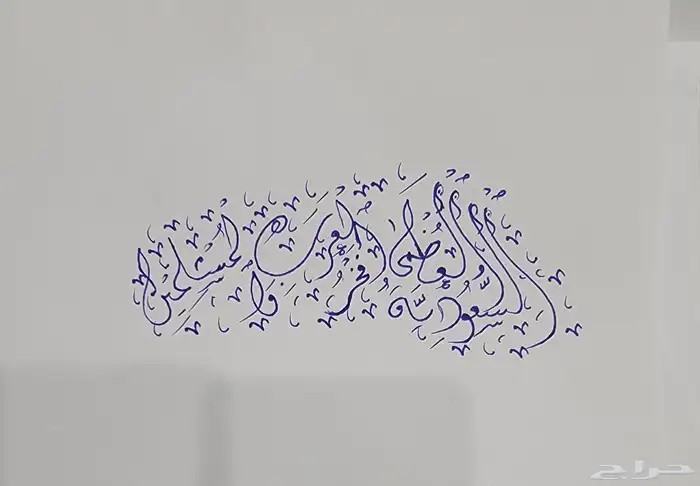 السعودية العظمى فخر العرب والمسلمين
حراج